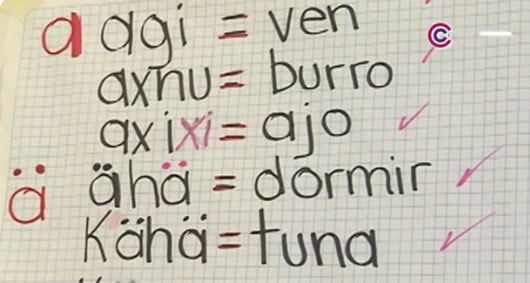 a agi = ven
axnu = burro
axixi = ajo
ä ähä = dormir
Kähä = tuna